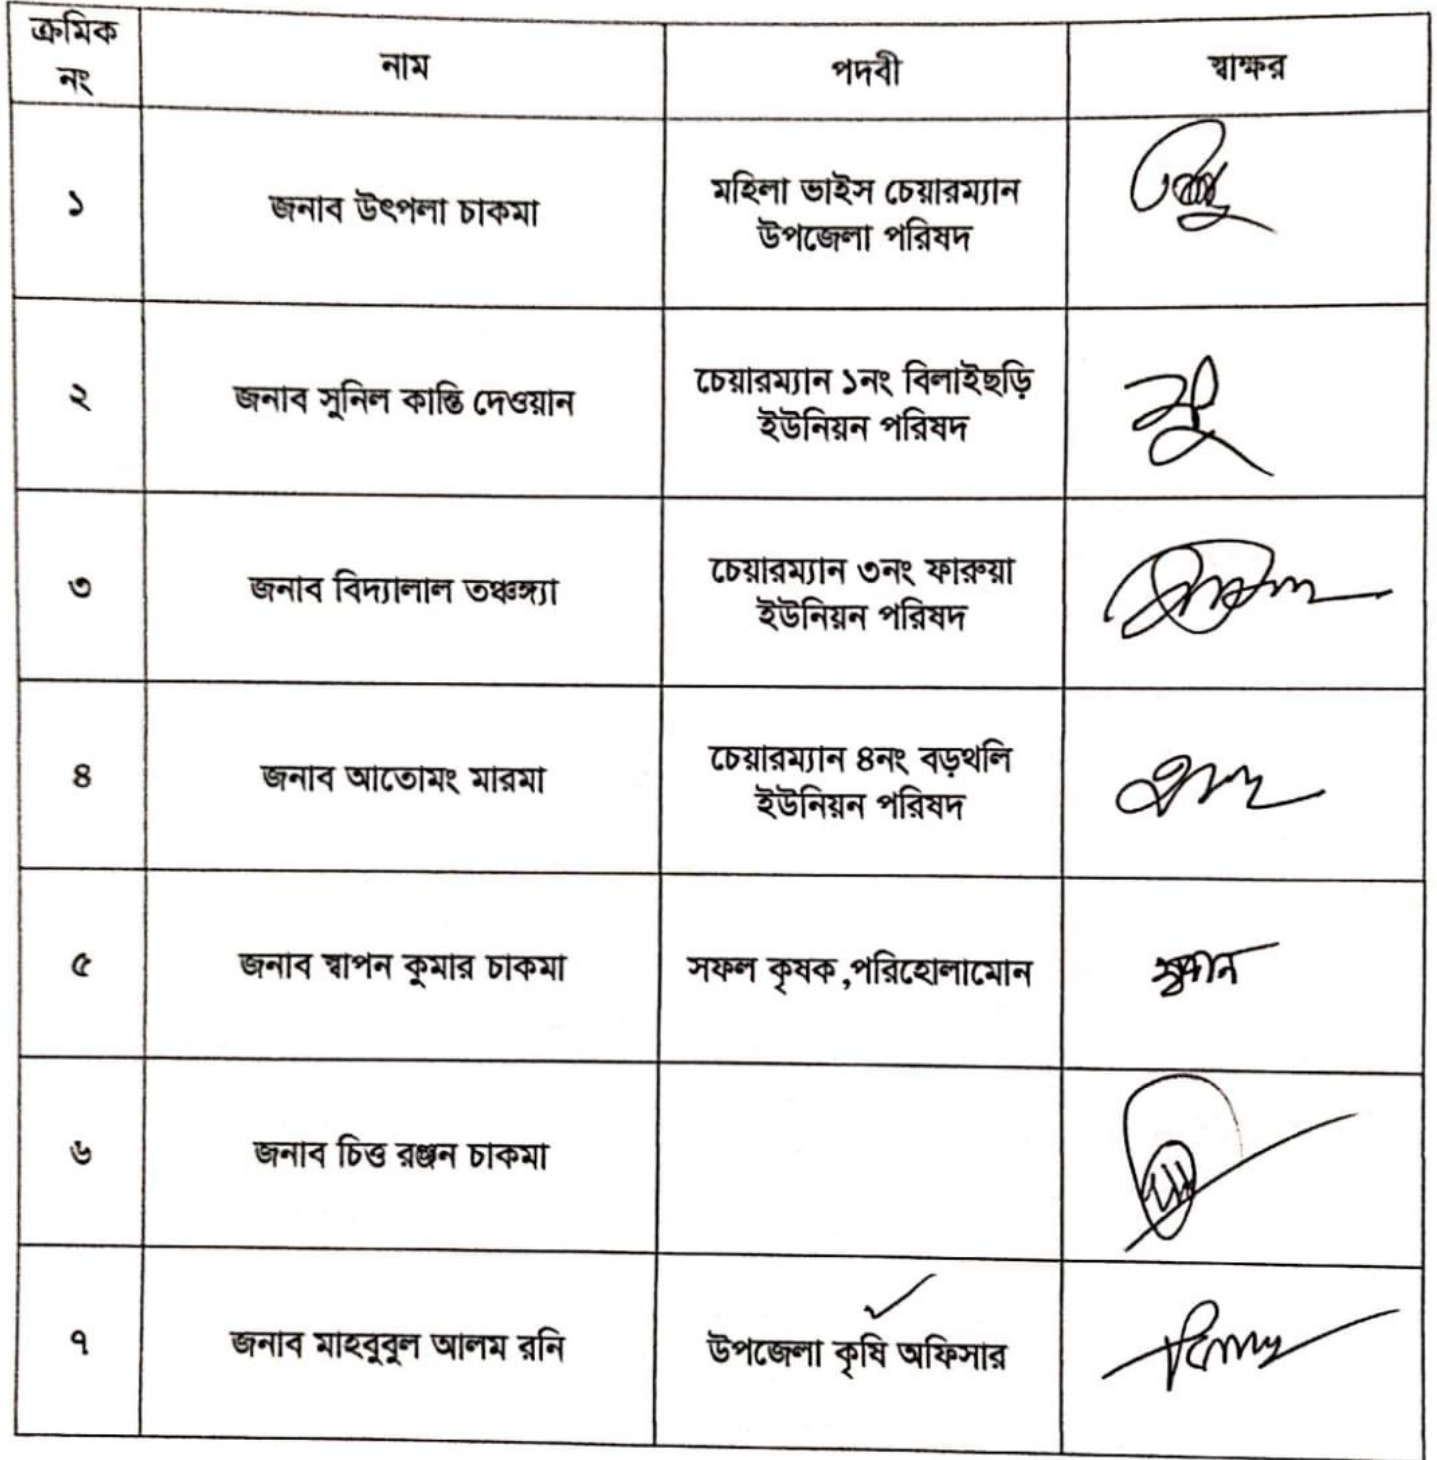 ক্রমিক নং নাম পদবী স্বাক্ষর
১ জনাব উৎপলা চাকমা মহিলা ভাইস চেয়ারম্যান
উপজেলা পরিষদ
২ জনাব সুনিল কান্তি দেওয়ান চেয়ারম্যান ১নং বিলাইছড়ি
ইউনিয়ন পরিষদ
৩ জনাব বিদ্যালাল তঞ্চঙ্গ্যা চেয়ারম্যান ৩নং ফারুয়া
ইউনিয়ন পরিষদ
৪ জনাব আতোমং মারমা চেয়ারম্যান ৪নং বড়থলি
ইউনিয়ন পরিষদ
৫ জনাব স্বাপন কুমার চাকমা সফল কৃষক,পরিহোলামোন স্বপন
৬ জনাব চিত্ত রঞ্জন চাকমা
৭ জনাব মাহবুবুল আলম রনি উপজেলা কৃষি অফিসার